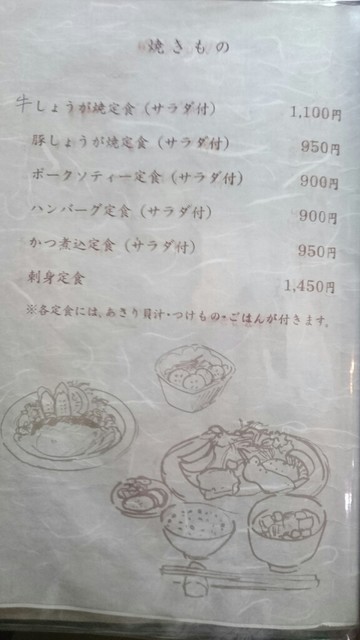 焼きもの
牛しょうが焼定食（サラダ付） 1,100円
豚しょうが焼定食（サラダ付） 950円
ポークソティー定食（サラダ付） 900円
ハンバーグ定食（サラダ付） 900円
かつ煮込定食（サラダ付） 950円
刺身定食 1,450円
※各定食には、あさり貝汁・つけもの・ごはんが付きます。